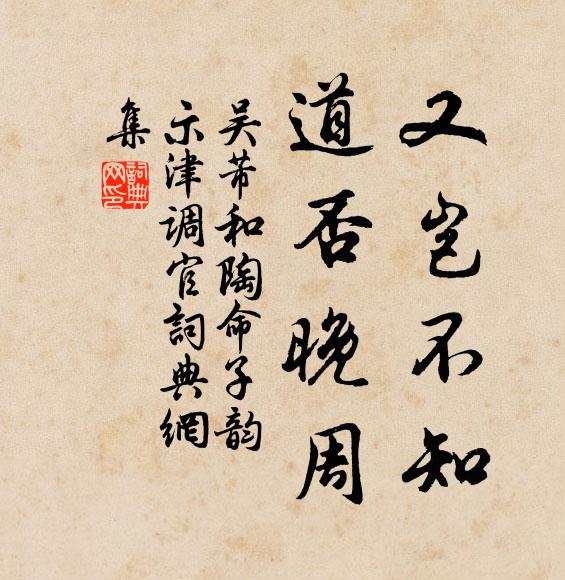 又岂不知
道否晚周
吴芾和陶命子韵
示津调官詞典網
集
詞典
网印